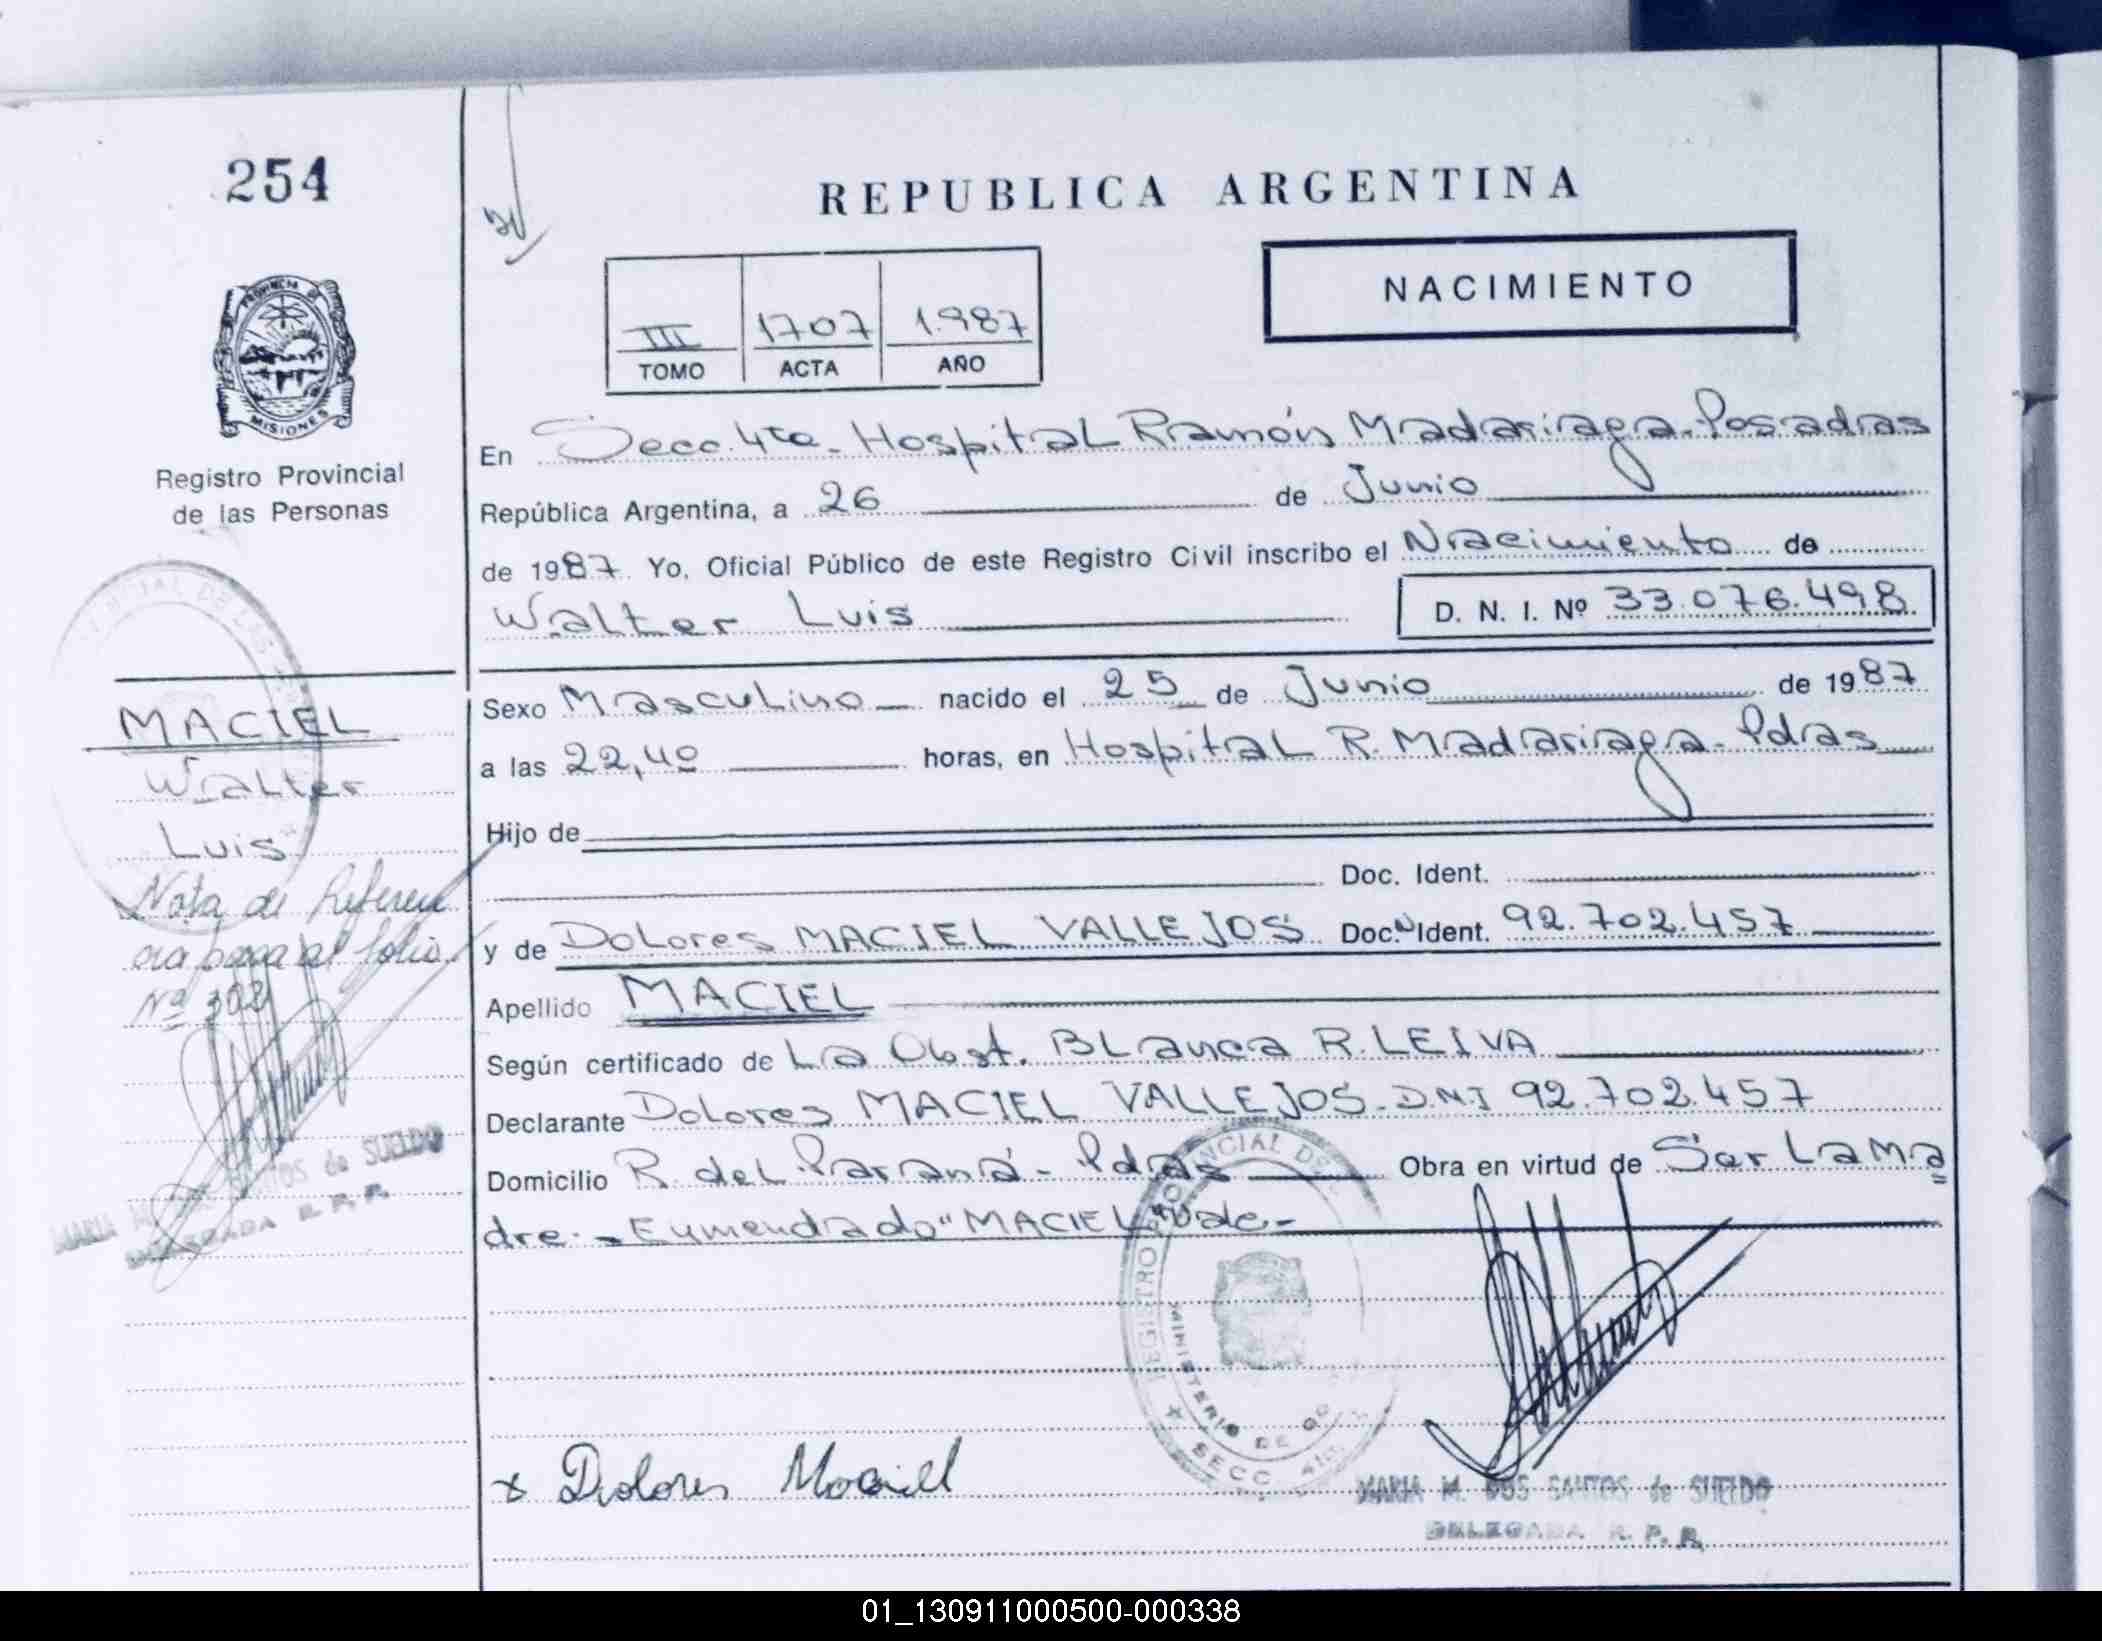 254
REPUBLICA ARGENTINA
NACIMIENTO
III 1707 1.987
TOMO ACTA AÑO
PROVINCIA DE
MISIONES
Registro Provincial
de las Personas
En Secc. 4ta. Hospital Ramón Madariaga. Posadas
República Argentina, a 26 de Junio
de 1987. Yo, Oficial Público de este Registro Civil inscribo el Nacimiento de
Walter Luis D. N. I. Nº 33.076.498
MACIEL
Walter
Luis
Nota de Referen
cia pasa al folio
Nº 302
MARIA SANTOS de SUELDO
DELEGADA R. P. P.
Sexo Masculino nacido el 25 de Junio de 1987
a las 22,40 horas, en Hospital R. Madariaga - Pdas
Hijo de
Doc. Ident.
y de Dolores MACIEL VALLEJOS Doc. Ident. 92.702.457
Apellido MACIEL
Según certificado de La Obst. Blanca R. LEIVA
Declarante Dolores MACIEL VALLEJOS - D.N.I 92.702.457
Domicilio R. del Paraná - Pdas Obra en virtud de Ser La Ma
dre. - Enmendado "MACIEL" Vale -
REGISTRO PROVINCIAL DE
MINISTERIO DE GO
SECC. 4ta.
x Dolores Maciel
MARIA M. DOS SANTOS de SUELDO
DELEGADA R. P. P.
01_130911000500-000338